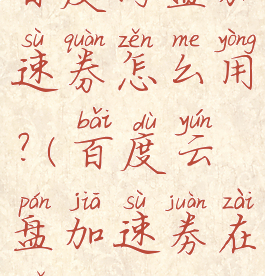 sù quàn zěn me yòng
速券怎么用
bǎi dù yún
?(百度云
pán jiā sù juàn zài
盘加速券在